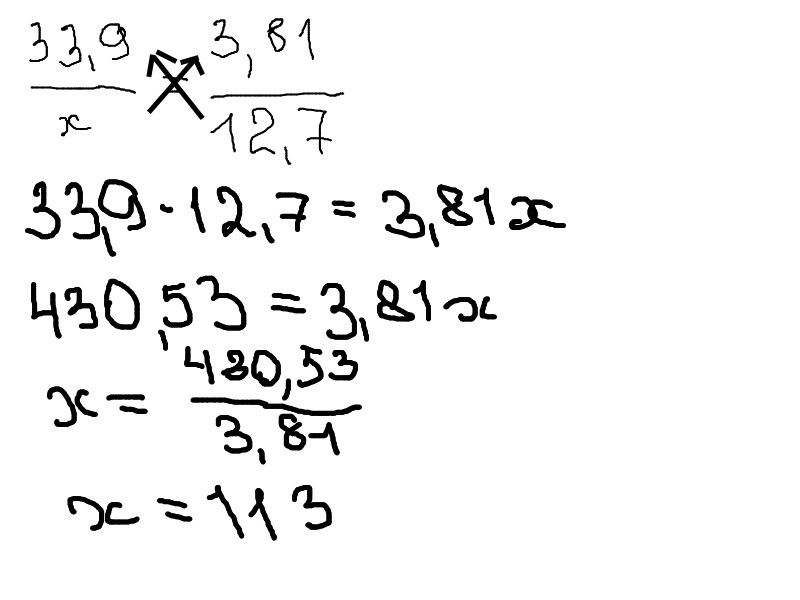 33,9/x = 3,81/12,7
33,9 · 12,7 = 3,81x
430,53 = 3,81x
x = 430,53/3,81
x = 113